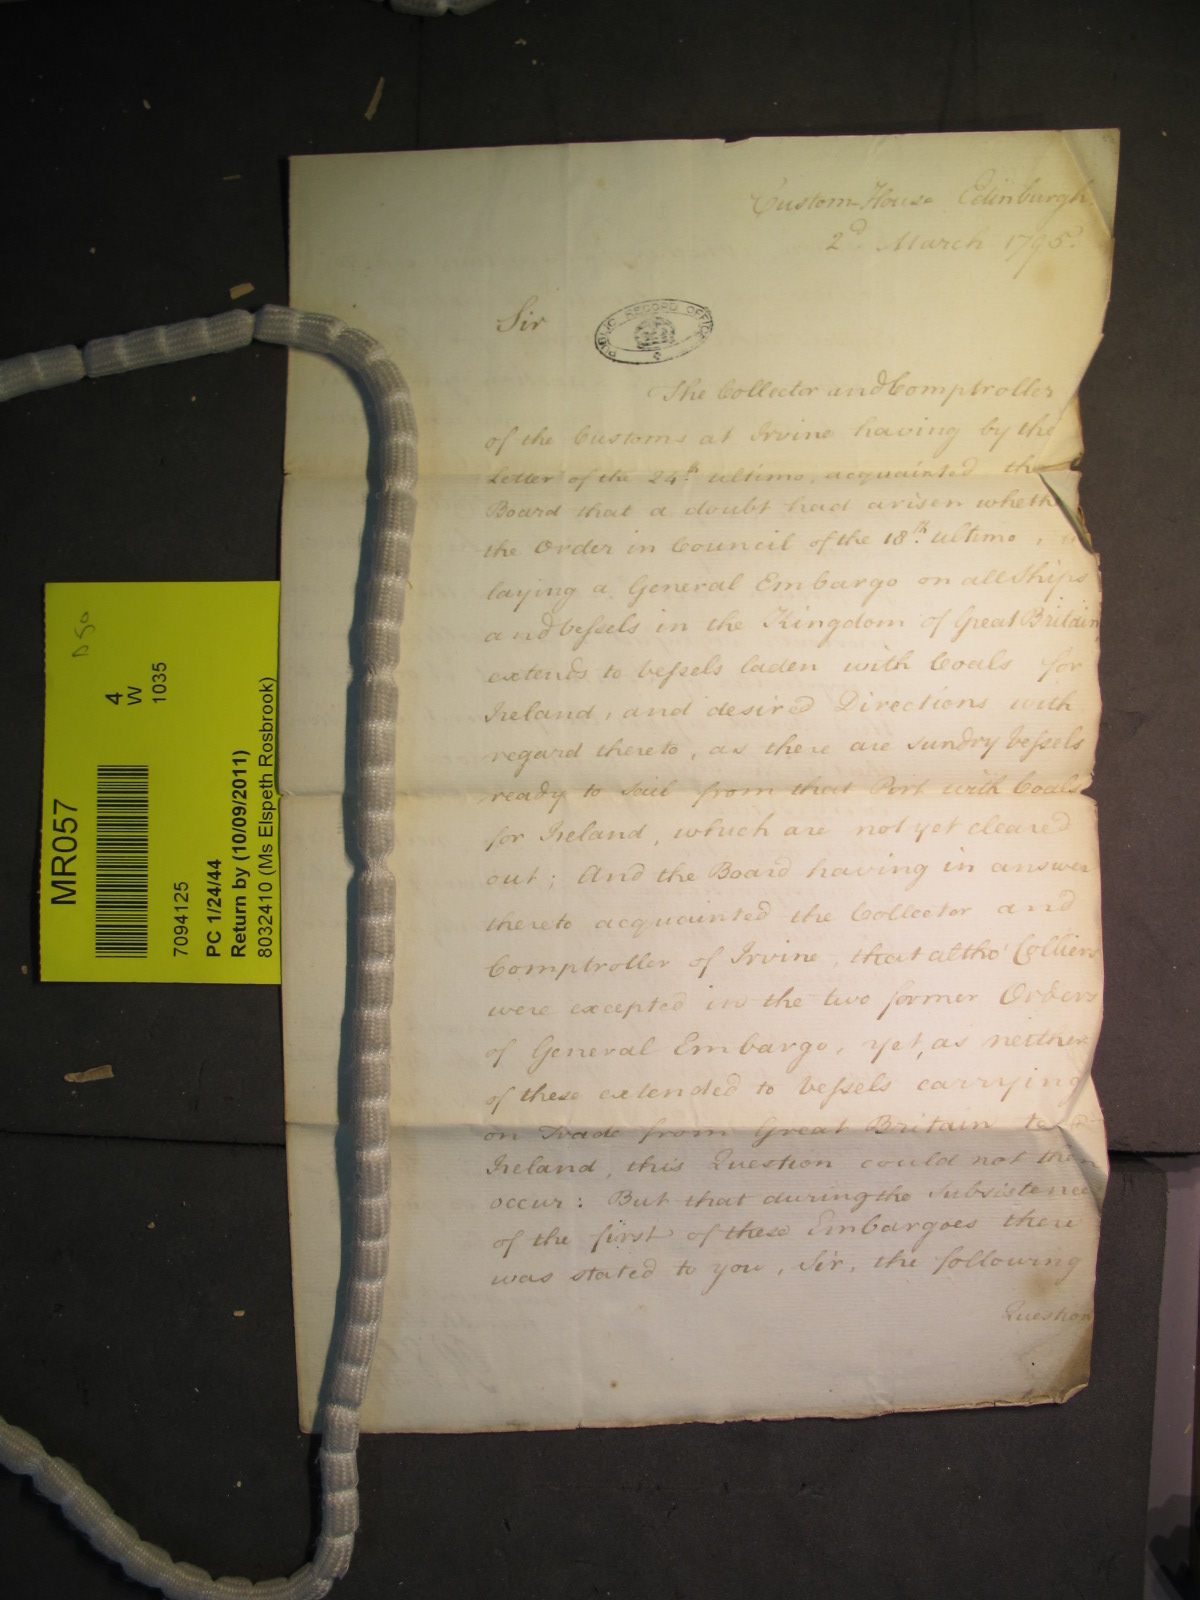 Custom-House Edinburgh,
2d. March 1795.
Sir
PUBLIC RECORD OFFICE
The Collector and Comptroller
of the Customs at Irvine having by the
Letter of the 24th. ultimo, acquainted the
Board that a doubt had arisen wheth
the Order in Council of the 18th. ultimo,
laying a General Embargo on all Ships
and Vessels in the Kingdom of Great Britain
extends to Vessels laden with Coals for
Ireland, and desired Directions with
regard thereto, as there are sundry Vessels
ready to sail from that Port with Coals
for Ireland, which are not yet cleared
out; And the Board having in answer
thereto acquainted the Collector and
Comptroller of Irvine, that altho' Colliers
were excepted in the two former Orders
of General Embargo, yet, as neither
of these extended to Vessels carrying
on Trade from Great Britain to
Ireland, this Question could not then
occur: But that during the subsistence
of the first of these Embargoes there
was stated to you, Sir, the following
Question
MR057
4
W
1035
7094125
PC 1/24/44
Return by (10/09/2011)
8032410 (Ms Elspeth Rosbrook)